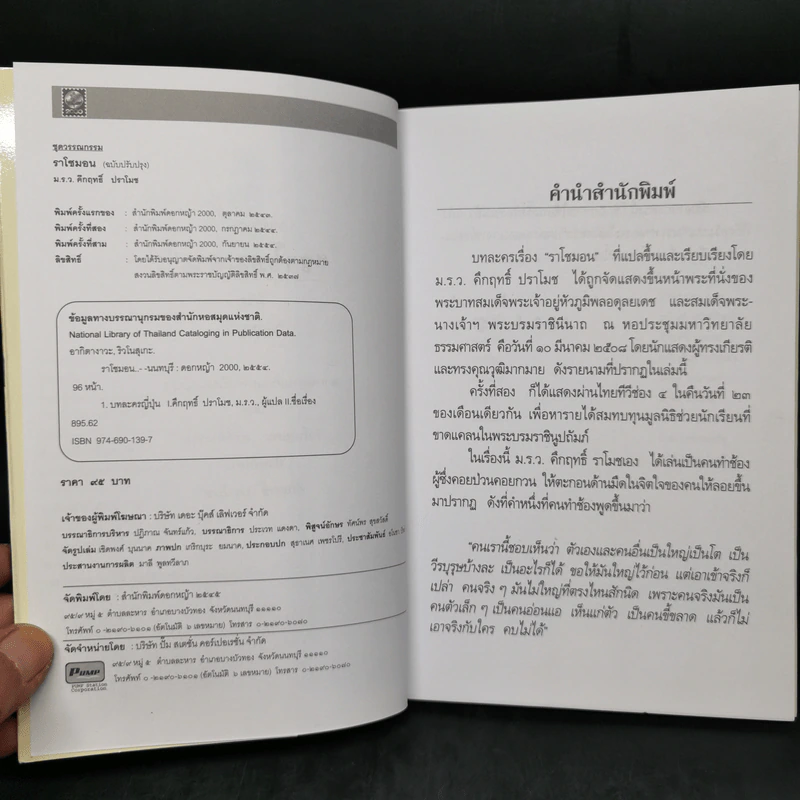 ชุดวรรณกรรม
ราโชมอน (ฉบับปรับปรุง)
ม.ร.ว. คึกฤทธิ์ ปราโมช
พิมพ์ครั้งแรกของ : สำนักพิมพ์ดอกหญ้า 2000, ตุลาคม ๒๕๔๓.
พิมพ์ครั้งที่สอง : สำนักพิมพ์ดอกหญ้า 2000, กรกฎาคม ๒๕๔๔.
พิมพ์ครั้งที่สาม : สำนักพิมพ์ดอกหญ้า 2000, กันยายน ๒๕๕๔.
ลิขสิทธิ์ : โดยได้รับอนุญาตจัดพิมพ์จากเจ้าของลิขสิทธิ์ถูกต้องตามกฎหมาย
สงวนลิขสิทธิ์ตามพระราชบัญญัติลิขสิทธิ์ พ.ศ. ๒๕๓๗
ข้อมูลทางบรรณานุกรมของสำนักหอสมุดแห่งชาติ.
National Library of Thailand Cataloging in Publication Data.
อากิตางาวะ, ริวโนสุเกะ.
ราโชมอน..- -นนทบุรี : ดอกหญ้า 2000, ๒๕๕๔.
96 หน้า.
1. บทละครญี่ปุ่น I.คึกฤทธิ์ ปราโมช, ม.ร.ว., ผู้แปล II.ชื่อเรื่อง
895.62
ISBN 974-690-139-7
ราคา ๙๕ บาท
เจ้าของผู้พิมพ์โฆษณา : บริษัท เดอะ บุ๊คส์ เลิฟเวอร์ จำกัด
บรรณาธิการบริหาร ปฏิภาณ จันทร์แก้ว. บรรณาธิการ ประเวท แดงดา, พิสูจน์อักษร ทัศนัพร สุรสวัสดิ์
จัดรูปเล่ม เชิดพงศ์ บุนนาค ภาพปก เกริกบุระ ยมนาค, ประกอบปก สุธาเนศ เพชรโปรี, ประชาสัมพันธ์
ประสานงานการผลิต มาลี พูลทวีลาภ
จัดพิมพ์โดย : สำนักพิมพ์ดอกหญ้า ๒๕๔๕
๙๕/๙ หมู่ ๕ ตำบลละหาร อำเภอบางบัวทอง จังหวัดนนทบุรี ๑๑๑๑๐
โทรศัพท์ ๐ -๒๑๙๐-๖๑๐๑ (อัตโนมัติ ๖ เลขหมาย) โทรสาร ๐-๒๑๙๐-๖๐๘๐
จัดจำหน่ายโดย : บริษัท ปั๊ม สเตชั่น คอร์เปอเรชั่น จำกัด
๙๕/๙ หมู่ ๕ ตำบลละหาร อำเภอบางบัวทอง จังหวัดนนทบุรี ๑๑๑๑๐
โทรศัพท์ ๐ -๒๑๙๐-๖๑๐๑ (อัตโนมัติ ๖ เลขหมาย) โทรสาร ๐-๒๑๙๐-๖๐๘๐
PUMP
PUMP Station
Corporation.
คำนำสำนักพิมพ์
บทละครเรื่อง "ราโชมอน" ที่แปลขึ้นและเรียบเรียงโดย
ม.ร.ว. คึกฤทธิ์ ปราโมช ได้ถูกจัดแสดงขึ้นหน้าพระที่นั่งของ
พระบาทสมเด็จพระเจ้าอยู่หัวภูมิพลอดุลยเดช และสมเด็จพระ-
นางเจ้าฯ พระบรมราชินีนาถ ณ หอประชุมมหาวิทยาลัย
ธรรมศาสตร์ คือวันที่ ๑๐ มีนาคม ๒๕๐๘ โดยนักแสดงผู้ทรงเกียรติ
และทรงคุณวุฒิมากมาย ดังรายนามที่ปรากฏในเล่มนี้
ครั้งที่สอง ก็ได้แสดงผ่านไทยทีวีช่อง ๔ ในคืนวันที่ ๒๓
ของเดือนเดียวกัน เพื่อหารายได้สมทบทุนมูลนิธิช่วยนักเรียนที่
ขาดแคลนในพระบรมราชินูปถัมภ์
ในเรื่องนี้ ม.ร.ว. คึกฤทธิ์ ราโมชเอง ได้เล่นเป็นคนทำช้อง
ผู้ซึ่งคอยป่วนคอยกวน ให้ตะกอนด้านมืดในจิตใจของคนให้ลอยขึ้น
มาปรากฏ ดังที่คำหนึ่งที่คนทำช้องพูดขึ้นมาว่า
"คนเรานี้ชอบเห็นว่า ตัวเองและคนอื่นเป็นใหญ่เป็นโต เป็น
วีรบุรุษบ้างละ เป็นอะไรก็ได้ ขอให้มันใหญ่ไว้ก่อน แต่เอาเข้าจริงก็
เปล่า คนจริง ๆ มันไม่ใหญ่ที่ตรงไหนสักนิด เพราะคนจริงมันเป็น
คนตัวเล็ก ๆ เป็นคนอ่อนแอ เห็นแก่ตัว เป็นคนขี้ขลาด แล้วก็ไม่
เอาจริงกับใคร คบไม่ได้"